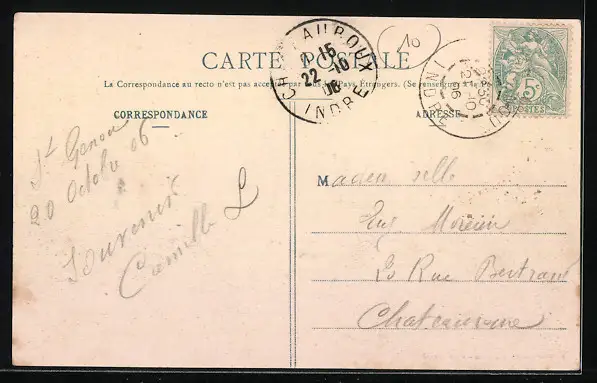 CARTE POSTALE
La Correspondance au recto n'est pas acceptée par tous les Pays Étrangers. (Se renseigner à la Poste)
CORRESPONDANCE
ADRESSE
CHATEAUROUX
15
22-10
06
INDRE
10
INDRE
5c
POSTES
St Genou
20 Octobre 06
Souvenir
Camille L
Mademoiselle
Rue Bertrand
Chateauroux